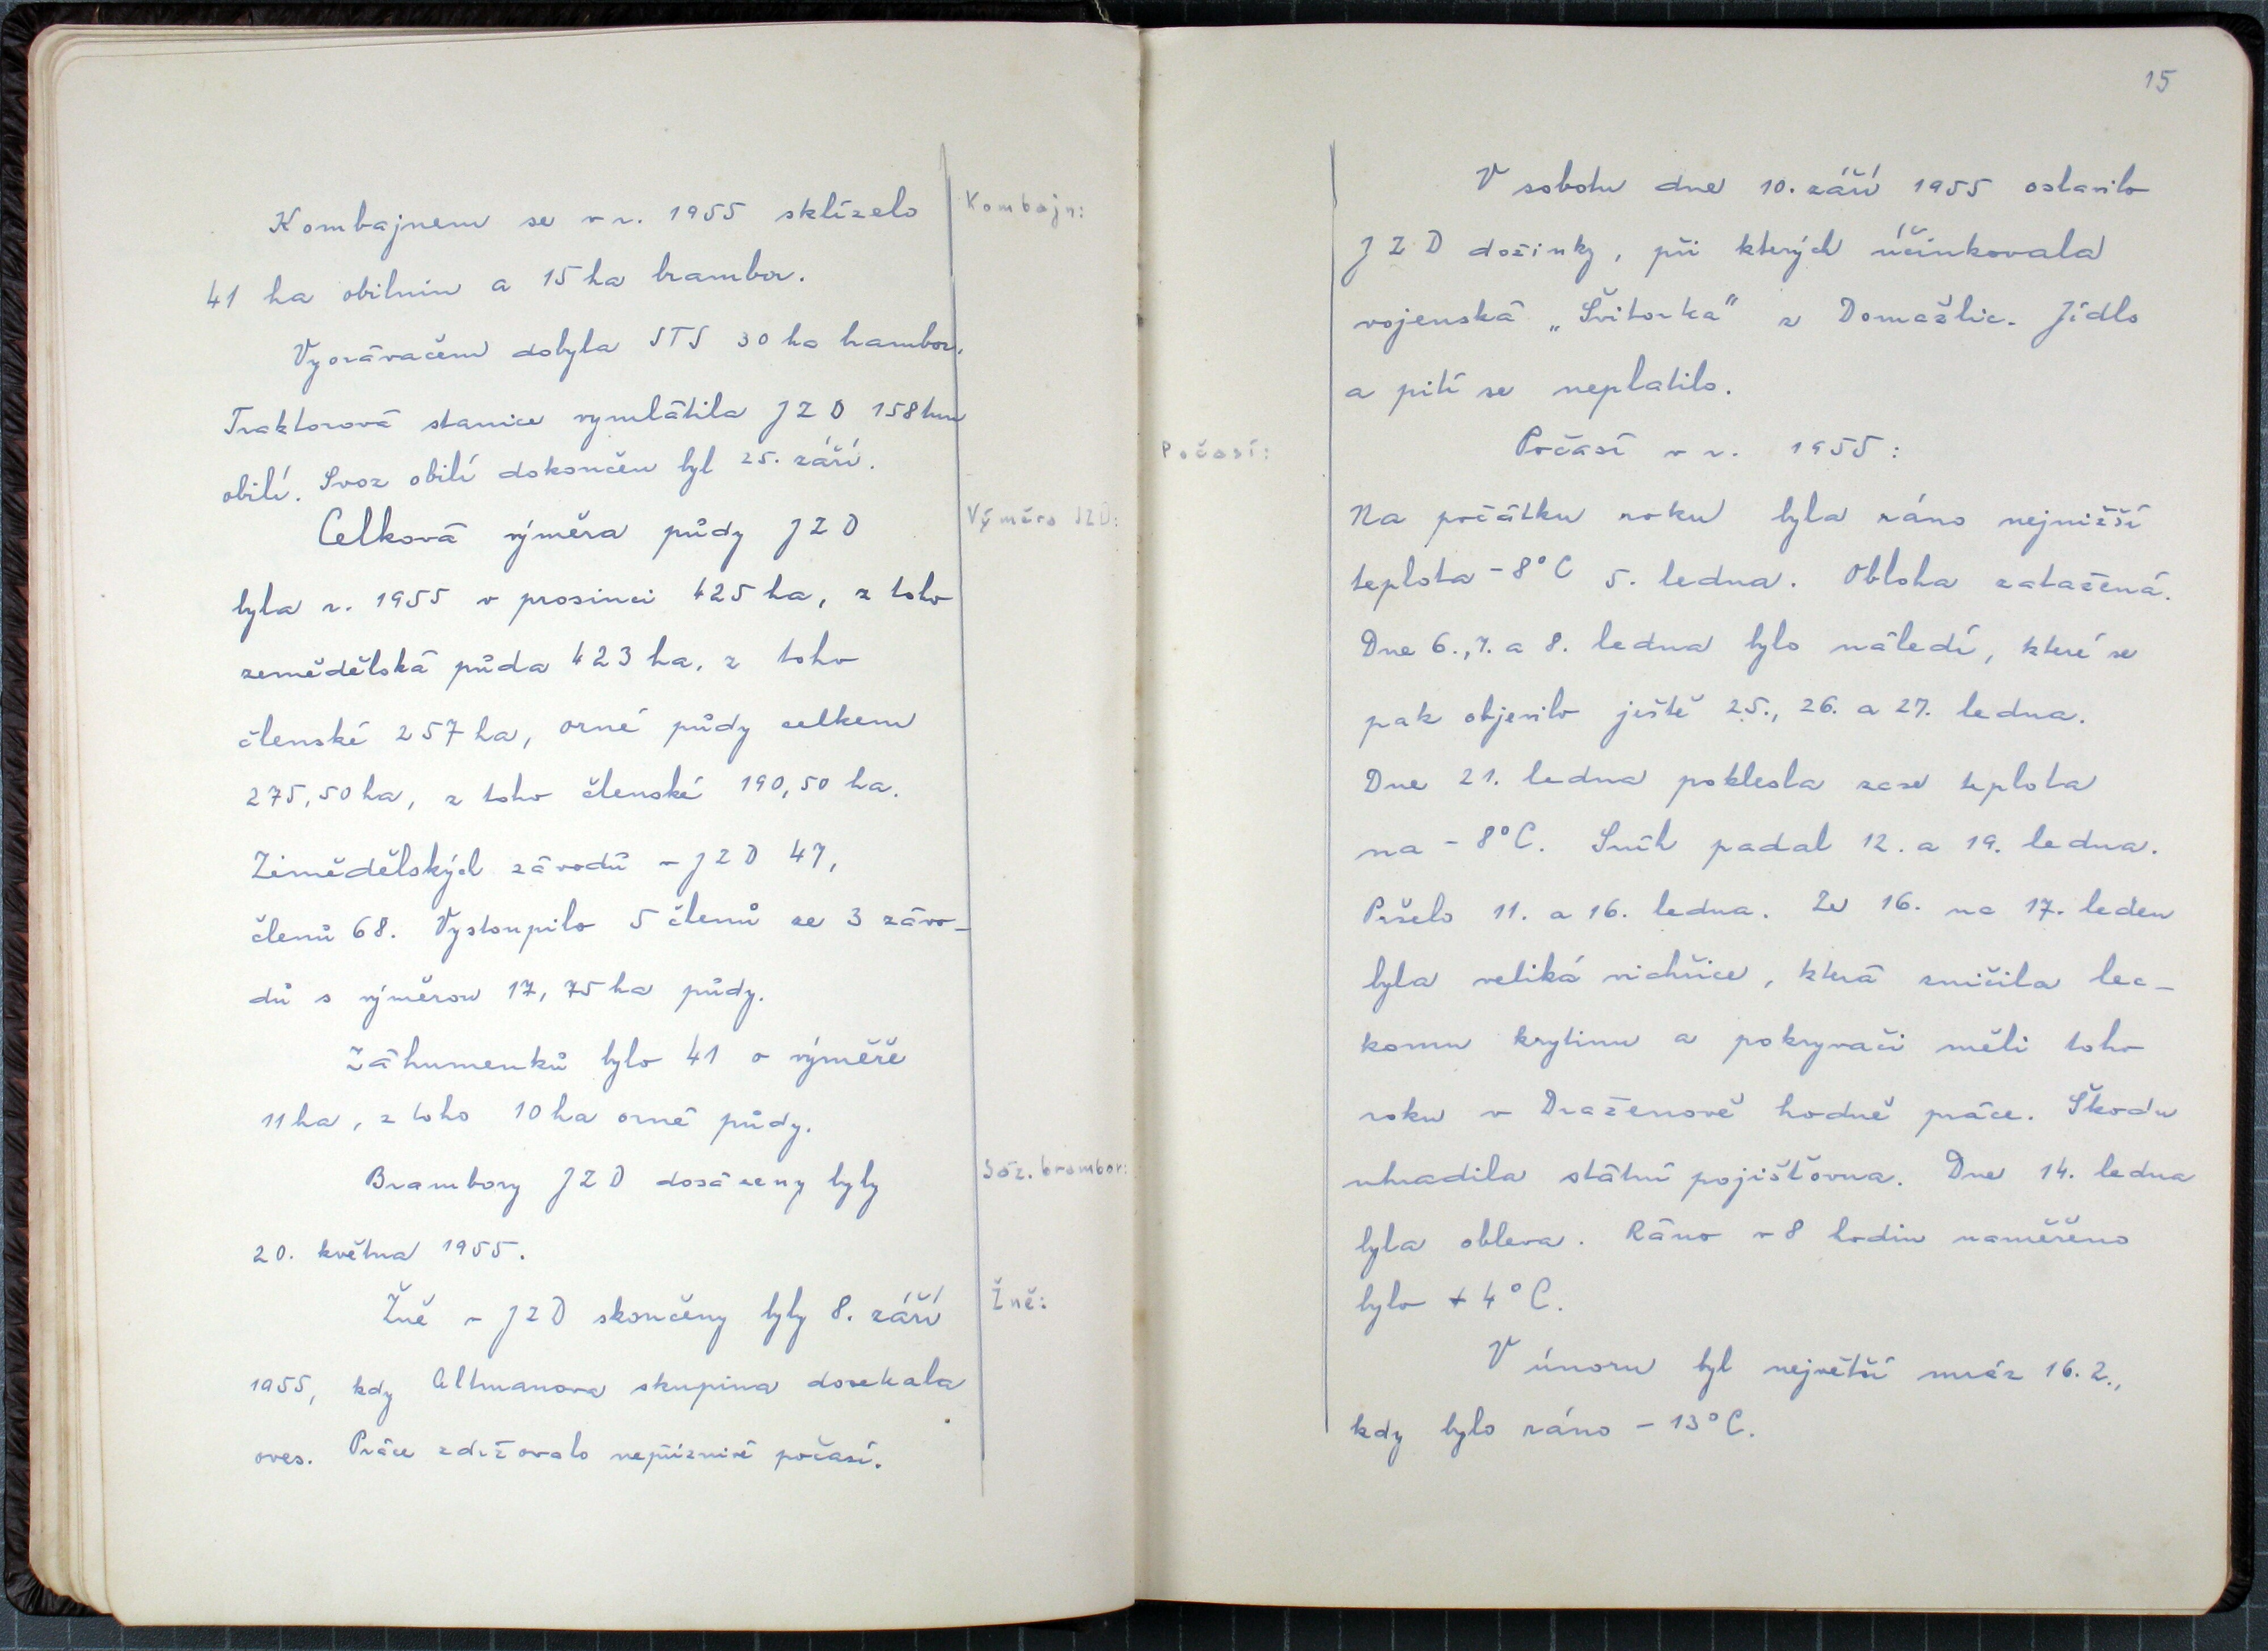 Kombajn:
Kombajnem se v r. 1955 sklízelo
41 ha obilnin a 15 ha brambor.
Vyorávačem dobyla STS 30 ha brambor.
Traktorová stanice vymlátila JZD 158 tun
obilí. Svoz obilí dokončen byl 25. září.
Výměra JZD:
Celková výměra půdy JZD
byla r. 1955 v prosinci 425 ha, z toho
zemědělská půda 423 ha, z toho
členské 257 ha, orné půdy celkem
275,50 ha, z toho členské 190,50 ha.
Zemědělských závodů v JZD 47,
členů 68. Vystoupilo 5 členů ze 3 závo-
dů s výměrou 17,75 ha půdy.
Záhumenků bylo 41 o výměře
11 ha, z toho 10 ha orné půdy.
Sáz. brambor:
Brambory JZD dosázeny byly
20. května 1955.
Žně:
Žně v JZD skončeny byly 8. září
1955, kdy Altmanova skupina dosekala
oves. Práce zdržovalo nepříznivé počasí.
15
V sobotu dne 10. září 1955 oslavilo
JZD dožinky, při kterých účinkovala
vojenská „Švitorka" z Domažlic. Jídlo
a pití se neplatilo.
Počasí:
Počasí v r. 1955:
Na počátku roku byla ráno nejnižší
teplota -8°C 5. ledna. Obloha zatažená.
Dne 6., 7. a 8. ledna bylo náledí, které se
pak objevilo ještě 25., 26. a 27. ledna.
Dne 21. ledna poklesla zase teplota
na -8°C. Sníh padal 12. a 19. ledna.
Pršelo 11. a 16. ledna. Ze 16. na 17. leden
byla veliká vichřice, která zničila lec-
komu krytinu a pokryvači měli toho
roku v Draženově hodně práce. Škodu
uhradila státní pojišťovna. Dne 14. ledna
byla obleva. Ráno v 8 hodin naměřeno
bylo +4°C.
V únoru byl největší mráz 16.2.,
kdy bylo ráno -13°C.